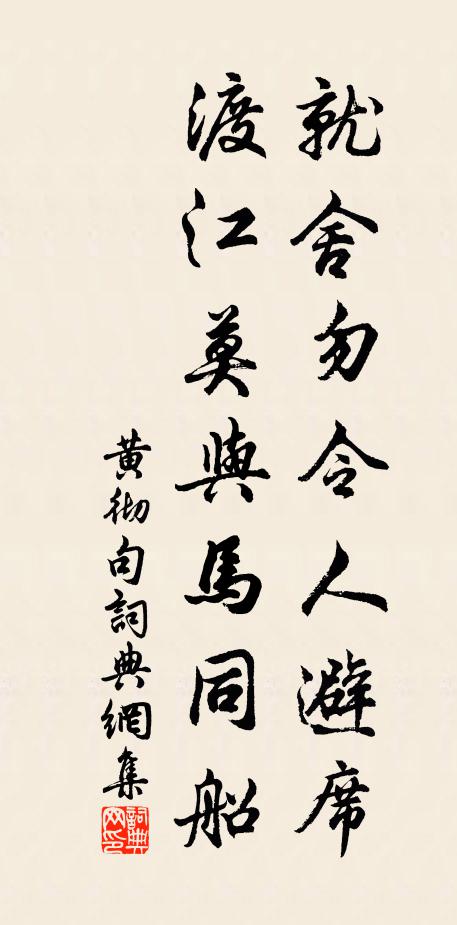 就舍勿令人避席
渡江莫與馬同船
黃彻句詞典網集
詞典網印